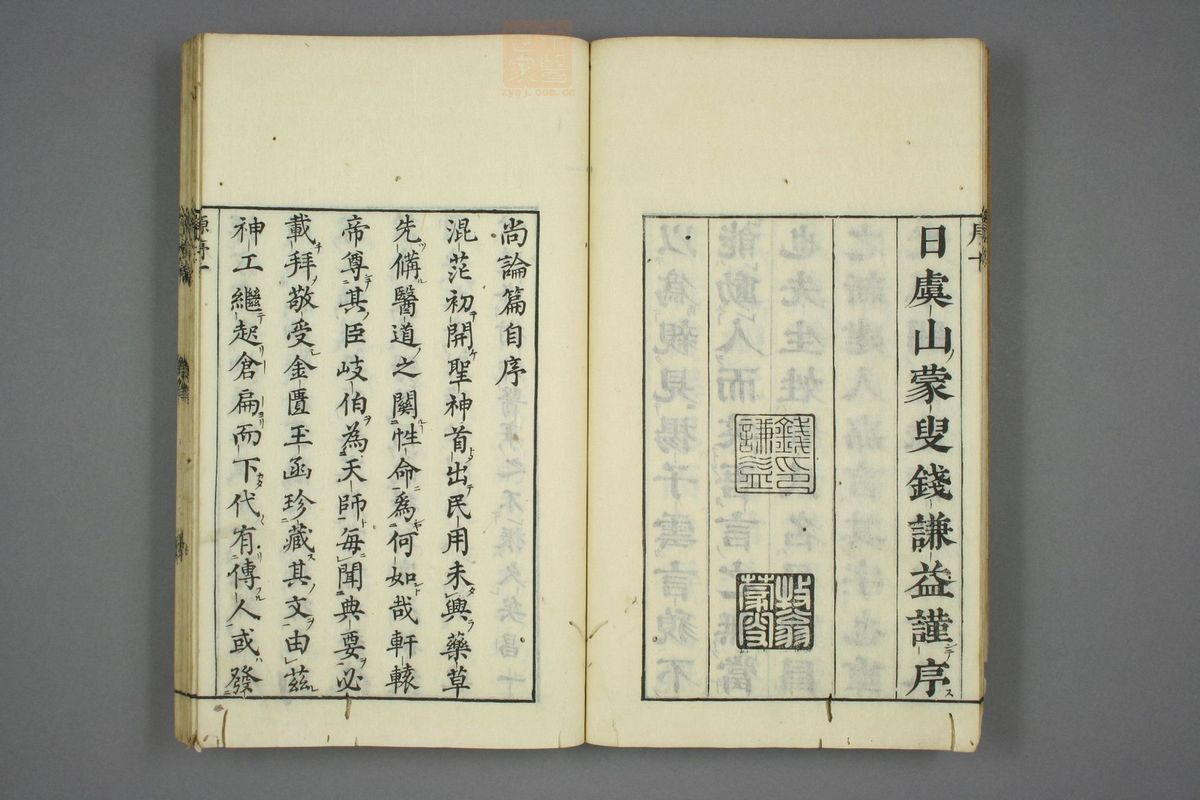 日虞山蒙叟錢謙益謹序
錢謙益印
牧翁蒙叟
尚論篇自序
混茫初開聖神首出民用未興藥草
先備醫道之關性命爲何如哉軒轅
帝尊其臣岐伯為天師每聞典要必
載拜敬受金匱玉函珍藏其文由茲
神工繼起倉扁而下代有傳人或發